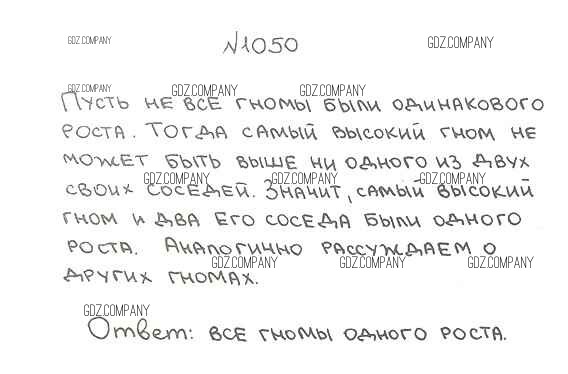 GDZ.COMPANY
№1050
GDZ.COMPANY
GDZ.COMPANY
GDZ.COMPANY
GDZ.COMPANY
Пусть не все гномы были одинакового
роста. Тогда самый высокий гном не
может быть выше ни одного из двух
GDZ.COMPANY
GDZ.COMPANY
GDZ.COMPANY
своих соседей. Значит, самый высокий
гном и два его соседа были одного
роста. Аналогично рассуждаем о
GDZ.COMPANY
GDZ.COMPANY
GDZ.COMPANY
других гномах.
GDZ.COMPANY
Ответ: все гномы одного роста.